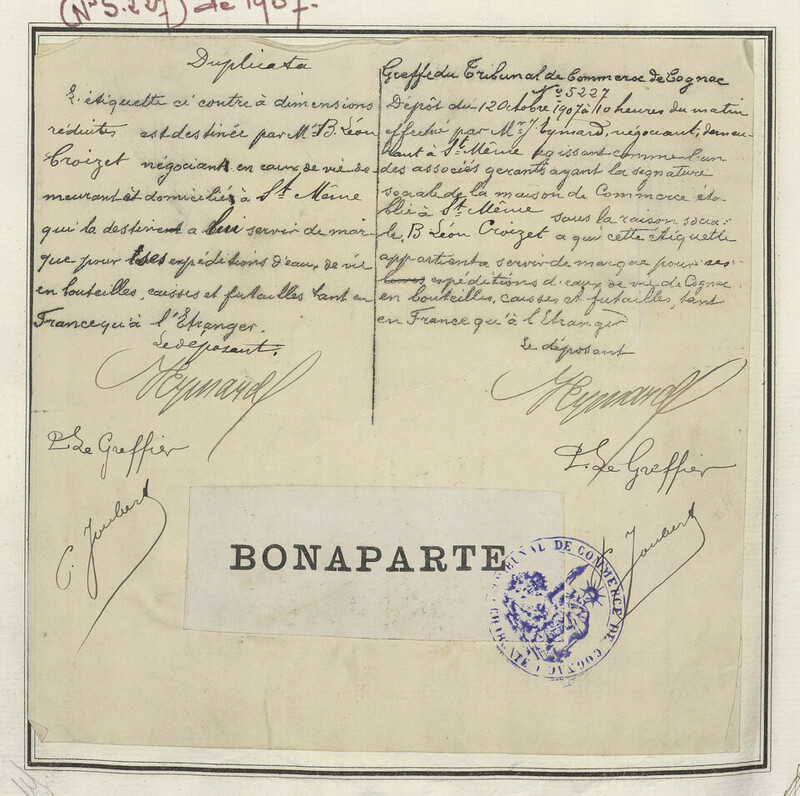 (No 5.227) de 1907.
Duplicata
L'étiquette ci contre à dimensions
réduites est destinée par Mr B. Léon
Croizet négociant en eaux de vie de-
meurant et domicilié à St Même
qui la destine à lui servir de mar
que pour ses expéditions d'eaux de vie
en bouteilles, caisses et futailles tant en
France qu'à l'Etranger.
Le déposant.
Heymard
P. Le Greffier
C. Joubert
Greffe du Tribunal de Commerce de Cognac
No 5227
Dépôt du 12 Octobre 1907 à 10 heures du matin
effectué par Mr Eymard, négociant, demeu-
rant à St Même agissant comme l'un
des associés gérants ayant la signature
sociale de la maison de Commerce éta-
blie à St Même sous la raison socia-
le, B Léon Croizet a qui cette étiquette
appartient a servir de marque pour ses
expéditions d'eaux de vie de Cognac
en bouteilles, caisses et futailles, tant
en France qu'à l'Etranger
Le déposant
Heymard
P. Le Greffier
C. Joubert
BONAPARTE
TRIBUNAL DE COMMERCE DE COGNAC